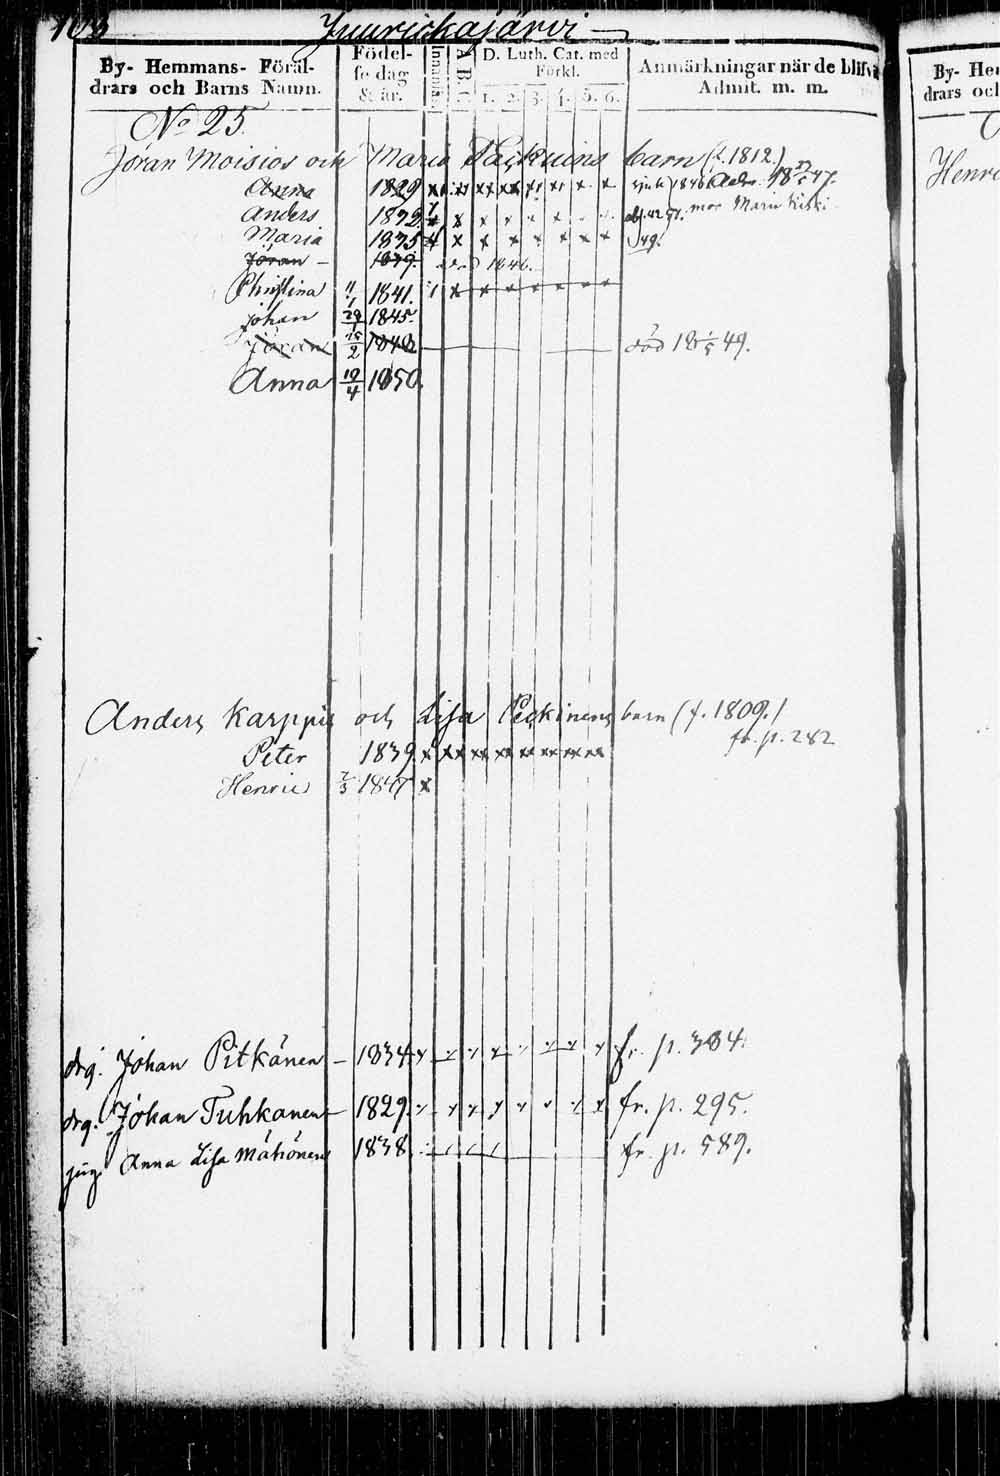 103 Juurickajärvi
By- Hemmans- Föräl-
drars och Barns Namn.
Födel-
se dag
& år.
Innanläs.
A B C.
D. Luth. Cat. med
Förkl.
1. 2. 3. 4. 5. 6.
Anmärkningar när de blifvit
Admit. m. m.
By- Hem
drars och
No 25.
Jöran Moisios och Maria barn (f. 1812.)
Anna 1829 1846 18 47.
Anders 1832. mor Maria
Maria 1835 49.
Jöran - 1839. död 1846.
Christina 11/1 1841.
Johan 29/1 1845.
Jöran 15/2 1848 död 18 1/5 49.
Anna 19/4 1850.
Henri
Anders Karppis och Lisa Peckinens barn (f. 1809.)
fr. p. 282
Peter 1839.
Henric 7/3 1847
drg. Johan Pitkänen - 1834 fr. p. 384.
drg. Johan Tuhkanen 1829. fr. p. 295.
pig. Anna Lisa Mähönen 1838 fr. p. 589.